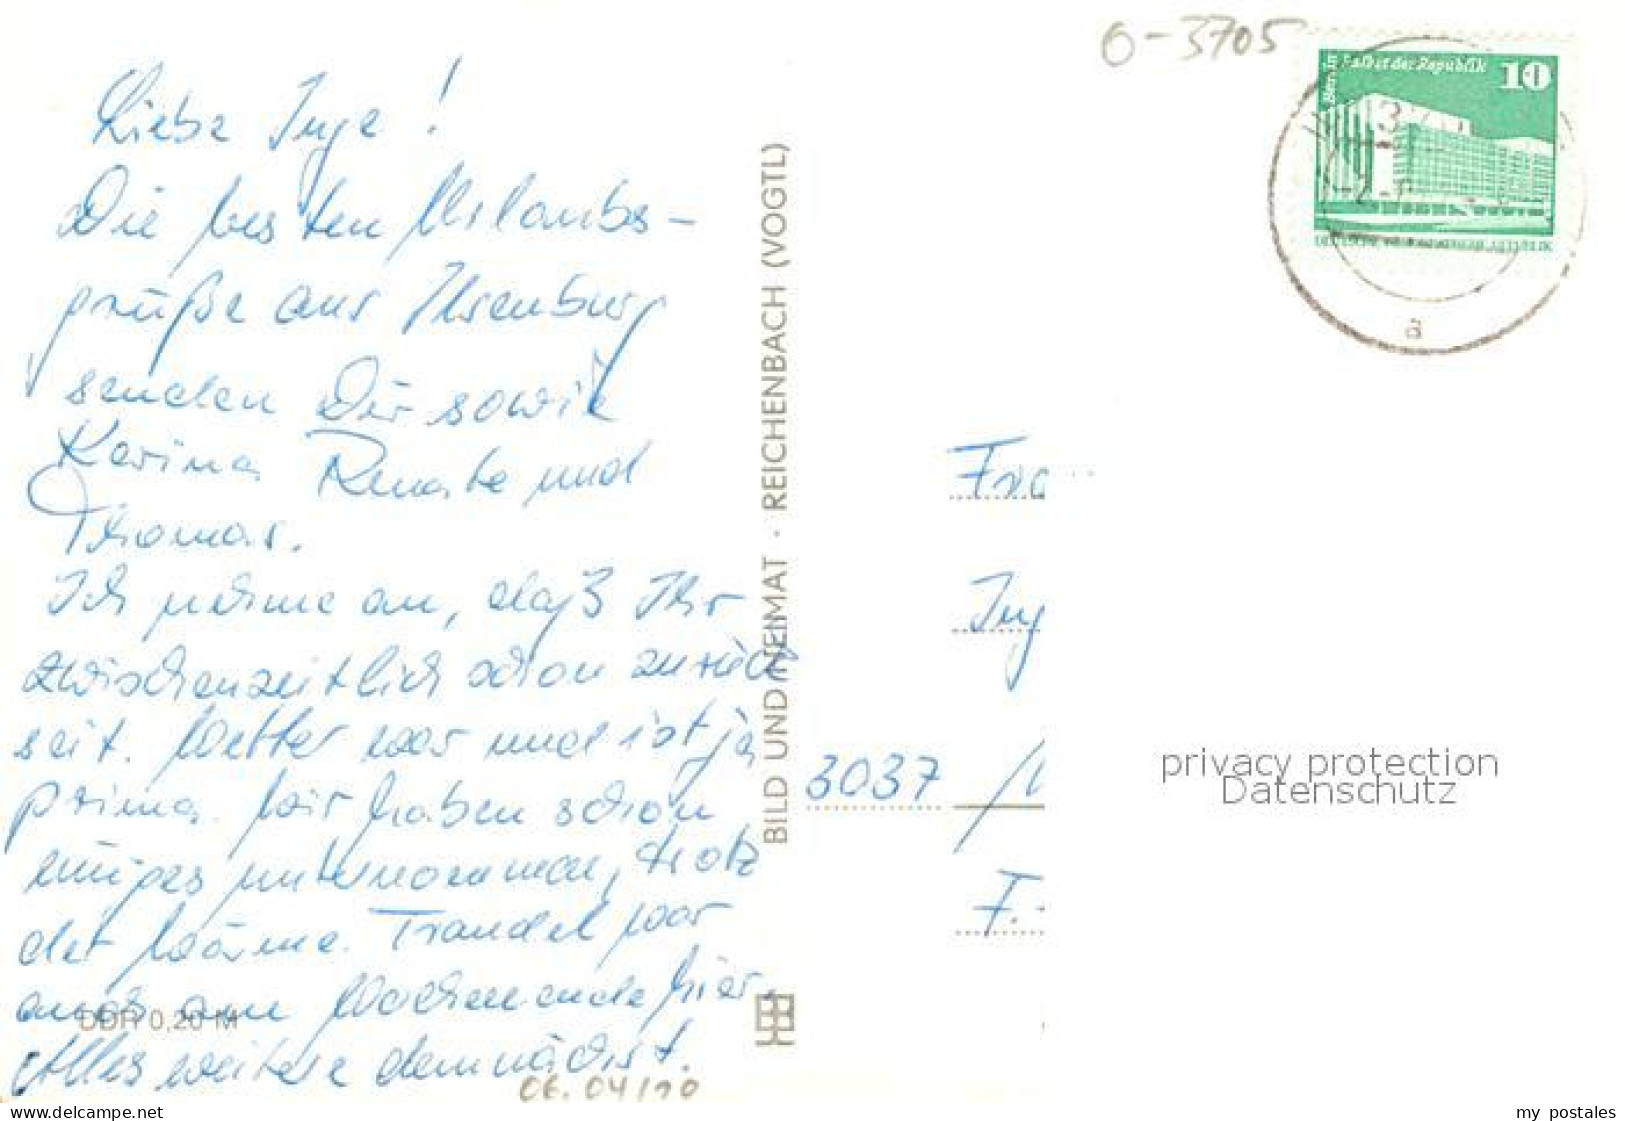 Liebe Inge!
Die besten Urlaubs-
grüße aus Ilsenburg
senden Dir sowie
Karina Renate und
Thomas.
Ich nehme an, daß Ihr
zwischenzeitlich schon zurück
seit. Wetter war und ist ja
prima. Wir haben schon
einiges unternommen, trotz
der Wärme. Traudel war
auch am Wochenende hier.
Alles weitere demnächst.
DDR 0,20 M
06.04/10
BILD UND HEIMAT · REICHENBACH (VOGTL)
0-3705
Berlin Palast der Republik 10
a
Fra
Ing
3037
F.
privacy protection
Datenschutz
delcampe.net
my_postales